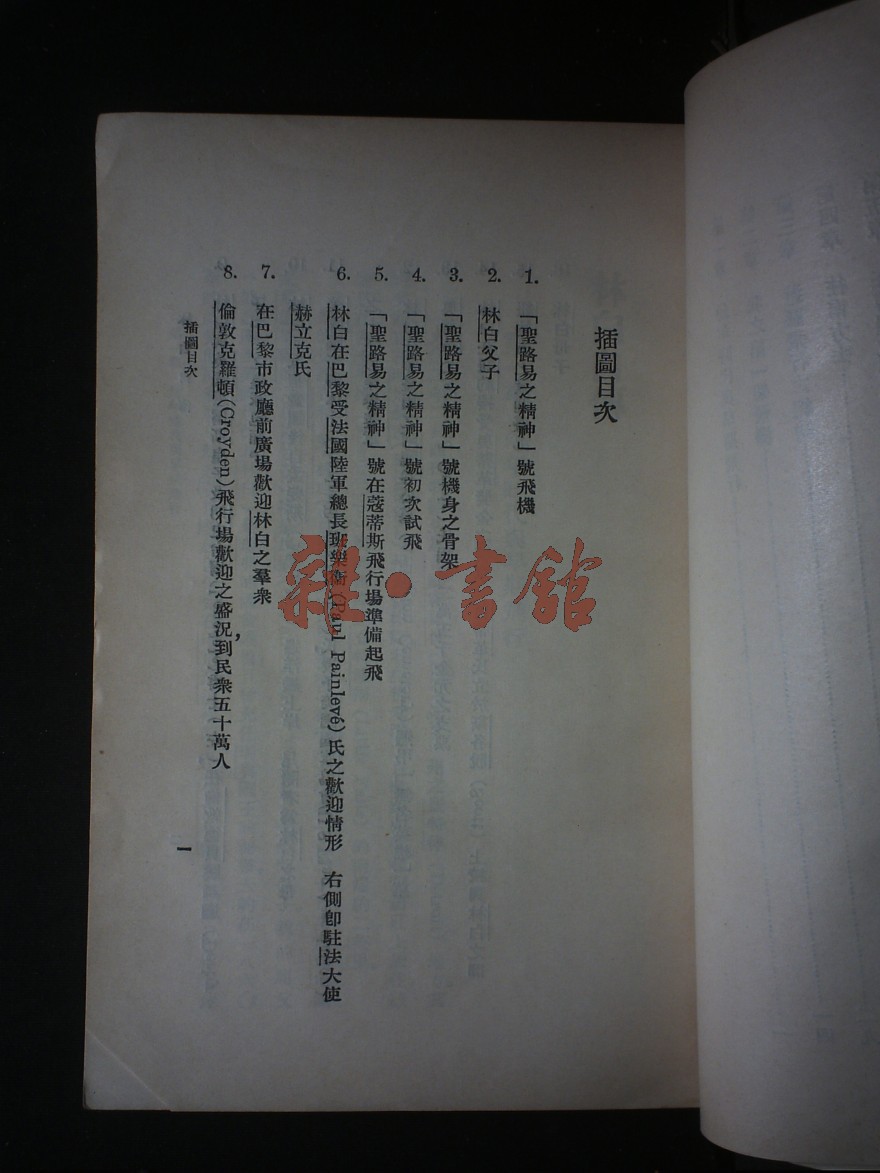 插圖目次
1. 「聖路易之精神」號飛機
2. 林白父子
3. 「聖路易之精神」號機身之骨架
4. 「聖路易之精神」號初次試飛
5. 「聖路易之精神」號在蔻蒂斯飛行場準備起飛
6. 林白在巴黎受法國陸軍總長班樂衞(Paul Painlevé)氏之歡迎情形 右側卽駐法大使
赫立克氏
7. 在巴黎市政廳前廣場歡迎林白之羣衆
8. 倫敦克羅頓(Croyden)飛行場歡迎之盛況，到民衆五十萬人
插圖目次
一
雜·書館